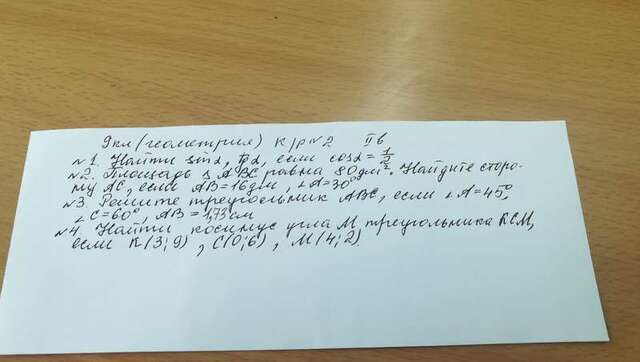 9кл (геометрия) К/р №2 IIв
№1. Найти sinα, tgα, если cosα = 1/2
№2. Площадь △ ABC равна 80дм². Найдите сторо-
ну AC, если AB=16дм, ∠A=30°
№3. Решите треугольник ABC, если ∠A=45°,
∠C=60°, AB=1,73см
№4. Найти косинус угла M треугольника KCM,
если K(3;9), C(0;6), M(4;2).